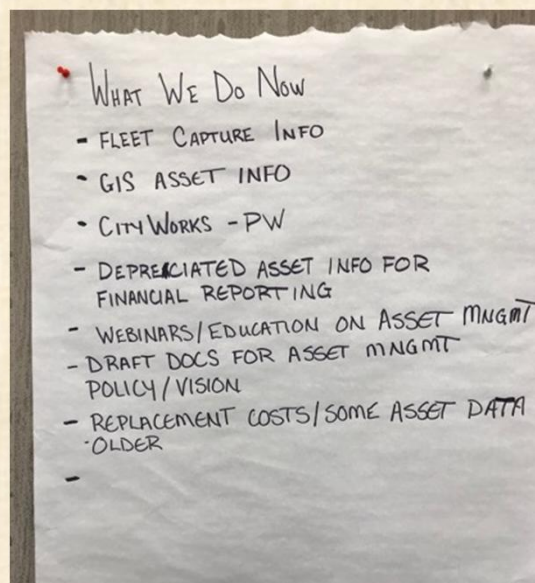 WHAT WE DO NOW
- FLEET CAPTURE INFO
- GIS ASSET INFO
- CITYWORKS - PW
- DEPRECIATED ASSET INFO FOR
FINANCIAL REPORTING
- WEBINARS/EDUCATION ON ASSET MNGMT
- DRAFT DOCS FOR ASSET MNGMT
POLICY/VISION
- REPLACEMENT COSTS/SOME ASSET DATA
·OLDER
-